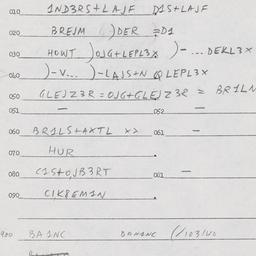 010 1ND3RS+LAJF D1S+LAJF
020 BREJM ( )DER =D1
030 HOWT )OJG+LEPL3X )-... DEKL3X
040 )-V... )-LAJS+N Q LEPL3X
050 GLEJZ3R = OJG+GLEJZ3R = BR1LN
051 — 052 —
060 BR1LS+AXTL XX 061 —
070 HUR .
080 C1S+OJB3RT 081 —
090 C1K8EM1N
900 BA1NC BANANC (/103/40